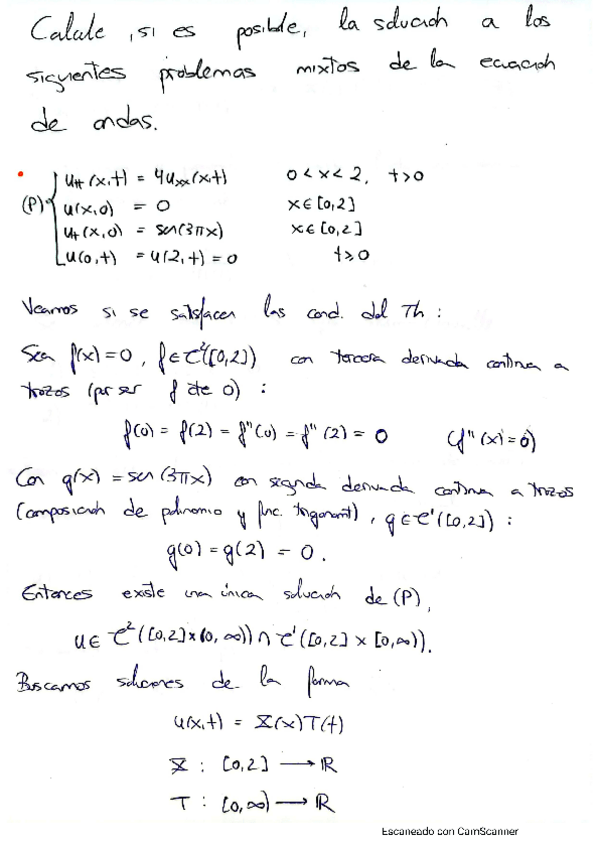 Calcule, si es posible, la solución a los
siguientes problemas mixtos de la ecuación
de ondas.
(P) { u_tt(x,t) = 4u_xx(x,t) 0 < x < 2, t > 0
u(x,0) = 0 x ∈ [0,2]
u_t(x,0) = sen(3πx) x ∈ [0,2]
u(0,t) = u(2,t) = 0 t ≥ 0
Veamos si se satisfacen las cond. del Th:
Sea f(x) = 0, f ∈ C²([0,2]) con tercera derivada continua a
trozos (por ser f cte 0):
f(0) = f(2) = f''(0) = f''(2) = 0 (f''(x) = 0)
Con g(x) = sen(3πx) con segunda derivada continua a trozos
(composición de polinomio y func. trigonomt), g ∈ C'([0,2]):
g(0) = g(2) = 0.
Entonces existe una única solución de (P),
u ∈ C²([0,2]×(0,∞)) ∩ C'([0,2] × [0,∞)).
Buscamos soluciones de la forma
u(x,t) = X(x)T(t)
X : [0,2] → ℝ
T : [0,∞) → ℝ
Escaneado con CamScanner